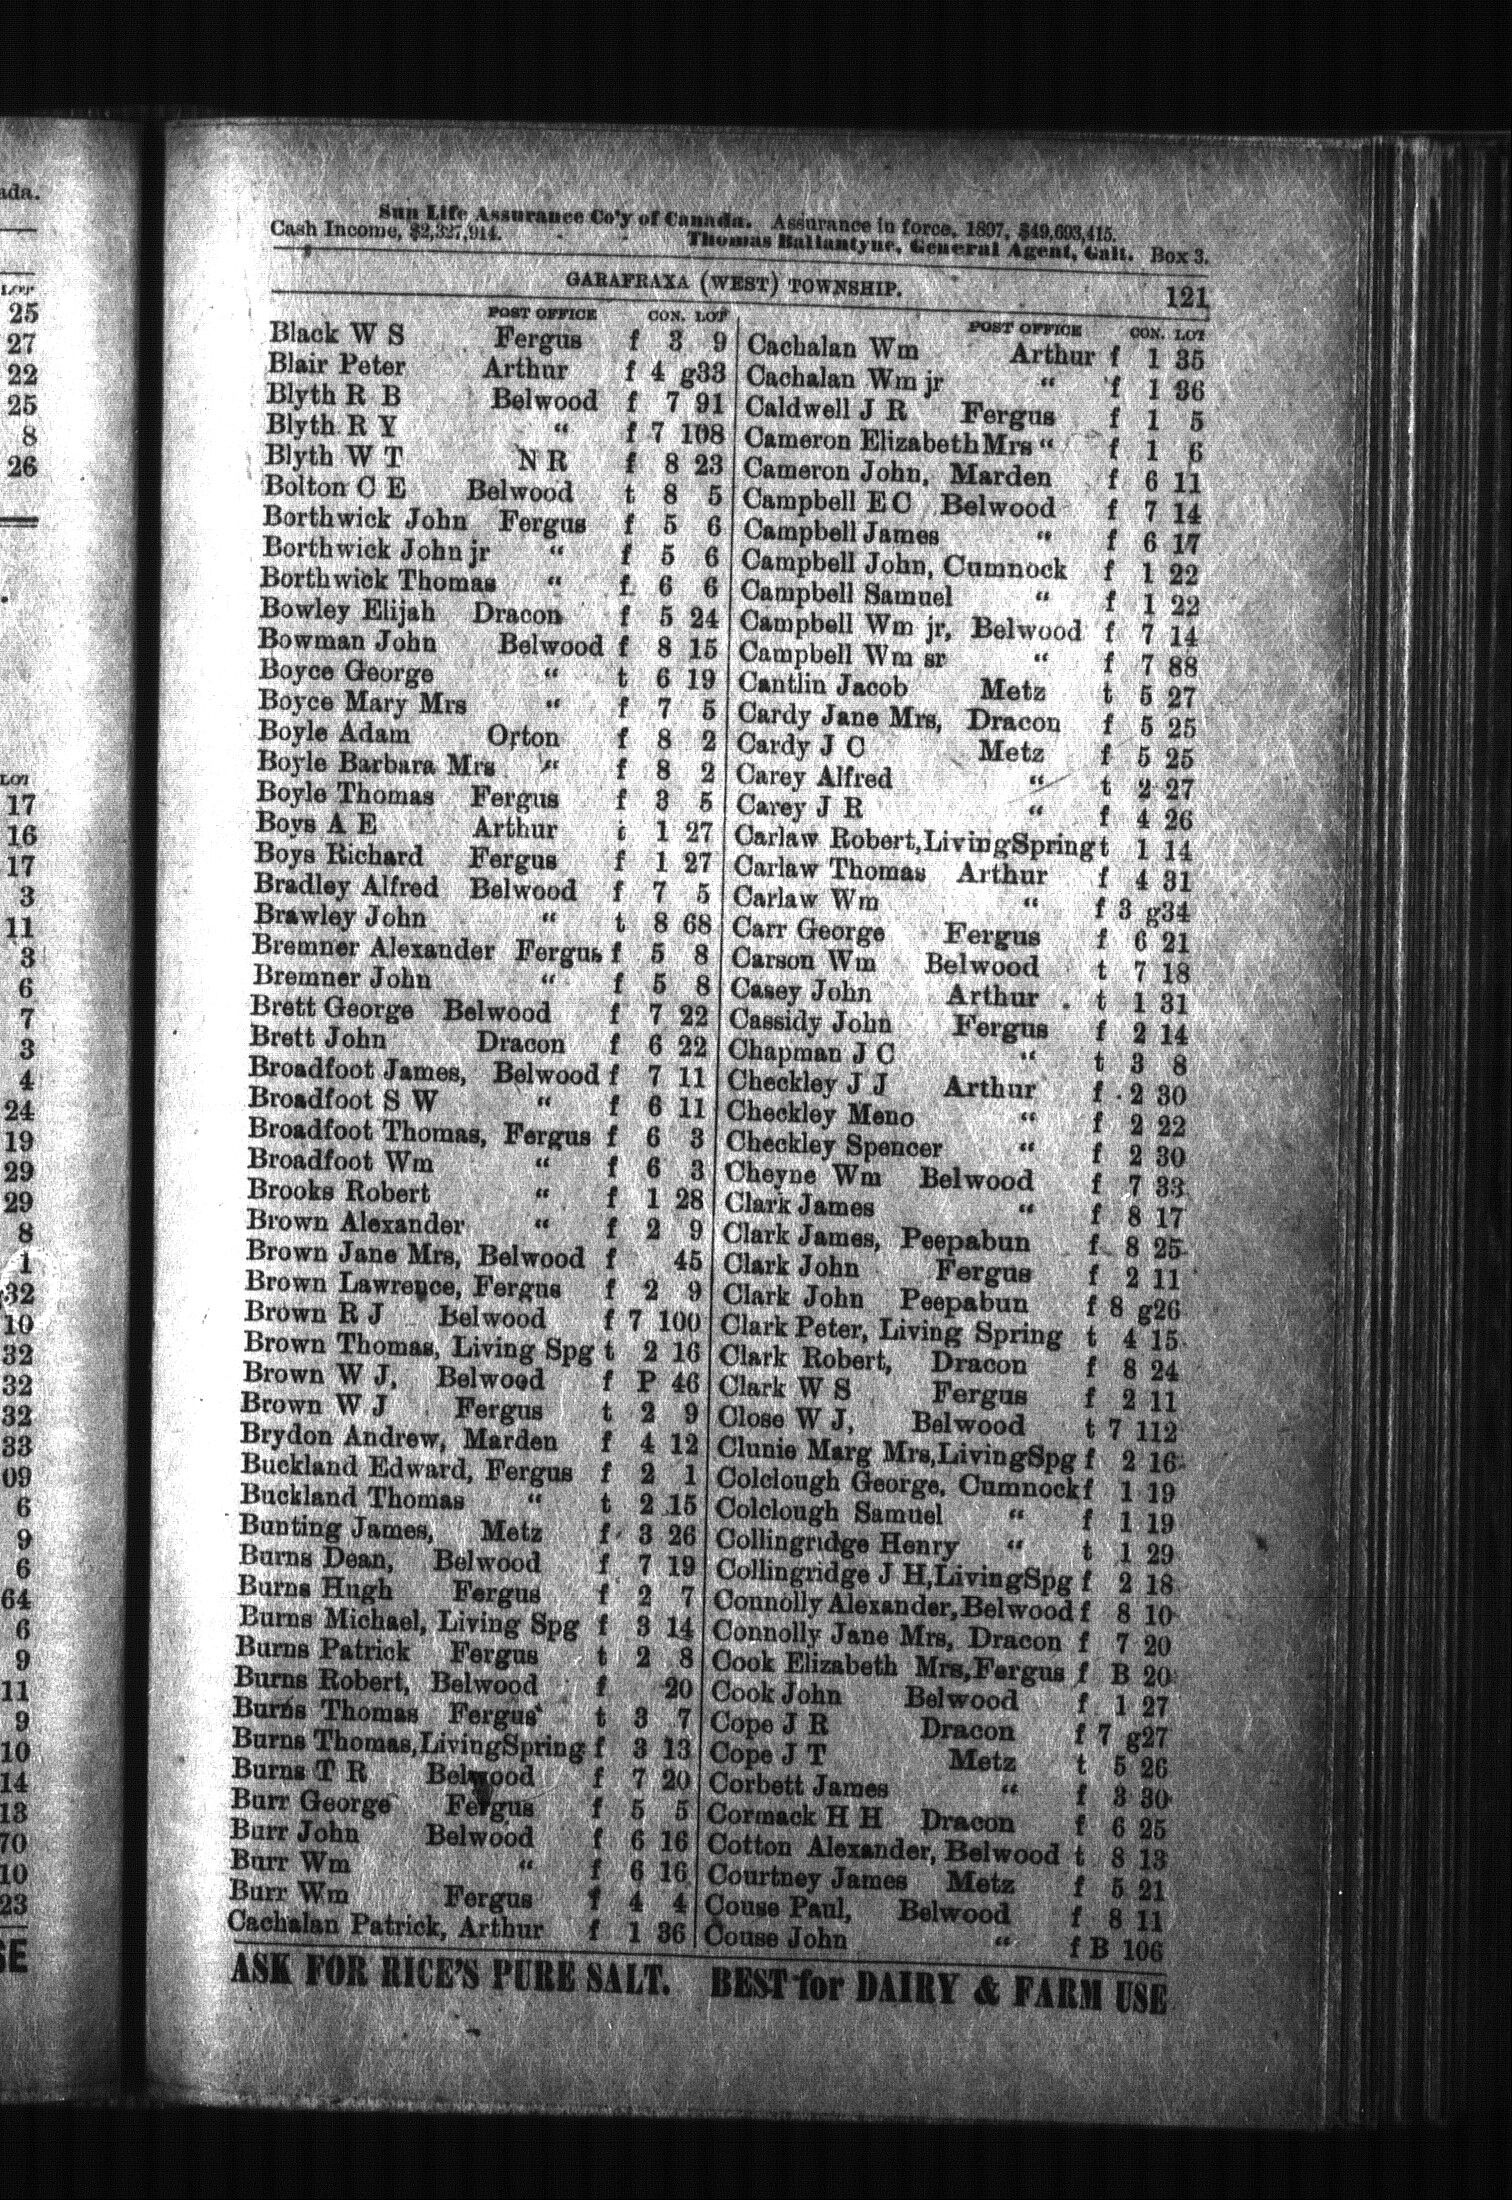 Sun Life Assurance Co'y of Canada. Assurance in force, 1897, $49,603,415.
Cash Income, $2,327,914. Thomas Ballantyne, General Agent, Galt. Box 3.
GARAFRAXA (WEST) TOWNSHIP. 121
POST OFFICE CON. LOT
Black W S Fergus f 3 9
Blair Peter Arthur f 4 g33
Blyth R B Belwood f 7 91
Blyth R Y " f 7 108
Blyth W T N R f 8 23
Bolton C E Belwood t 8 5
Borthwick John Fergus f 5 6
Borthwick John jr " f 5 6
Borthwick Thomas " f 6 6
Bowley Elijah Dracon f 5 24
Bowman John Belwood f 8 15
Boyce George " t 6 19
Boyce Mary Mrs " f 7 5
Boyle Adam Orton f 8 2
Boyle Barbara Mrs " f 8 2
Boyle Thomas Fergus f 3 5
Boys A E Arthur t 1 27
Boys Richard Fergus f 1 27
Bradley Alfred Belwood f 7 5
Brawley John " t 8 68
Bremner Alexander Fergus f 5 8
Bremner John " f 5 8
Brett George Belwood f 7 22
Brett John Dracon f 6 22
Broadfoot James, Belwood f 7 11
Broadfoot S W " f 6 11
Broadfoot Thomas, Fergus f 6 3
Broadfoot Wm " f 6 3
Brooks Robert " f 1 28
Brown Alexander " f 2 9
Brown Jane Mrs, Belwood f 45
Brown Lawrence, Fergus f 2 9
Brown R J Belwood f 7 100
Brown Thomas, Living Spg t 2 16
Brown W J, Belwood f P 46
Brown W J Fergus t 2 9
Brydon Andrew, Marden f 4 12
Buckland Edward, Fergus f 2 1
Buckland Thomas " t 2 15
Bunting James, Metz f 3 26
Burns Dean, Belwood f 7 19
Burns Hugh Fergus f 2 7
Burns Michael, Living Spg f 3 14
Burns Patrick Fergus t 2 8
Burns Robert, Belwood f 20
Burns Thomas Fergus t 3 7
Burns Thomas, LivingSpring f 3 13
Burns T R Belwood f 7 20
Burr George Fergus f 5 5
Burr John Belwood f 6 16
Burr Wm " f 6 16
Burr Wm Fergus f 4 4
Cachalan Patrick, Arthur f 1 36
POST OFFICE CON. LOT
Cachalan Wm Arthur f 1 35
Cachalan Wm jr " f 1 36
Caldwell J R Fergus f 1 5
Cameron Elizabeth Mrs " f 1 6
Cameron John, Marden f 6 11
Campbell E C Belwood f 7 14
Campbell James " f 6 17
Campbell John, Cumnock f 1 22
Campbell Samuel " f 1 22
Campbell Wm jr, Belwood f 7 14
Campbell Wm sr " f 7 88
Cantlin Jacob Metz t 5 27
Cardy Jane Mrs, Dracon f 5 25
Cardy J C Metz f 5 25
Carey Alfred " t 2 27
Carey J R " f 4 26
Carlaw Robert, LivingSpring t 1 14
Carlaw Thomas Arthur f 4 31
Carlaw Wm " f 3 g34
Carr George Fergus f 6 21
Carson Wm Belwood t 7 18
Casey John Arthur t 1 31
Cassidy John Fergus f 2 14
Chapman J C " t 3 8
Checkley J J Arthur f 2 30
Checkley Meno " f 2 22
Checkley Spencer " f 2 30
Cheyne Wm Belwood f 7 33
Clark James " f 8 17
Clark James, Peepabun f 8 25
Clark John Fergus f 2 11
Clark John Peepabun f 8 g26
Clark Peter, Living Spring t 4 15
Clark Robert, Dracon f 8 24
Clark W S Fergus f 2 11
Close W J, Belwood t 7 112
Clunie Marg Mrs, LivingSpg f 2 16
Colclough George, Cumnock f 1 19
Colclough Samuel " f 1 19
Collingridge Henry " t 1 29
Collingridge J H, LivingSpg f 2 18
Connolly Alexander, Belwood f 8 10
Connolly Jane Mrs, Dracon f 7 20
Cook Elizabeth Mrs, Fergus f B 20
Cook John Belwood f 1 27
Cope J R Dracon f 7 g27
Cope J T Metz t 5 26
Corbett James " f 3 30
Cormack H H Dracon f 6 25
Cotton Alexander, Belwood t 8 13
Courtney James Metz f 5 21
Couse Paul, Belwood f 8 11
Couse John " f B 106
ASK FOR RICE'S PURE SALT. BEST for DAIRY & FARM USE